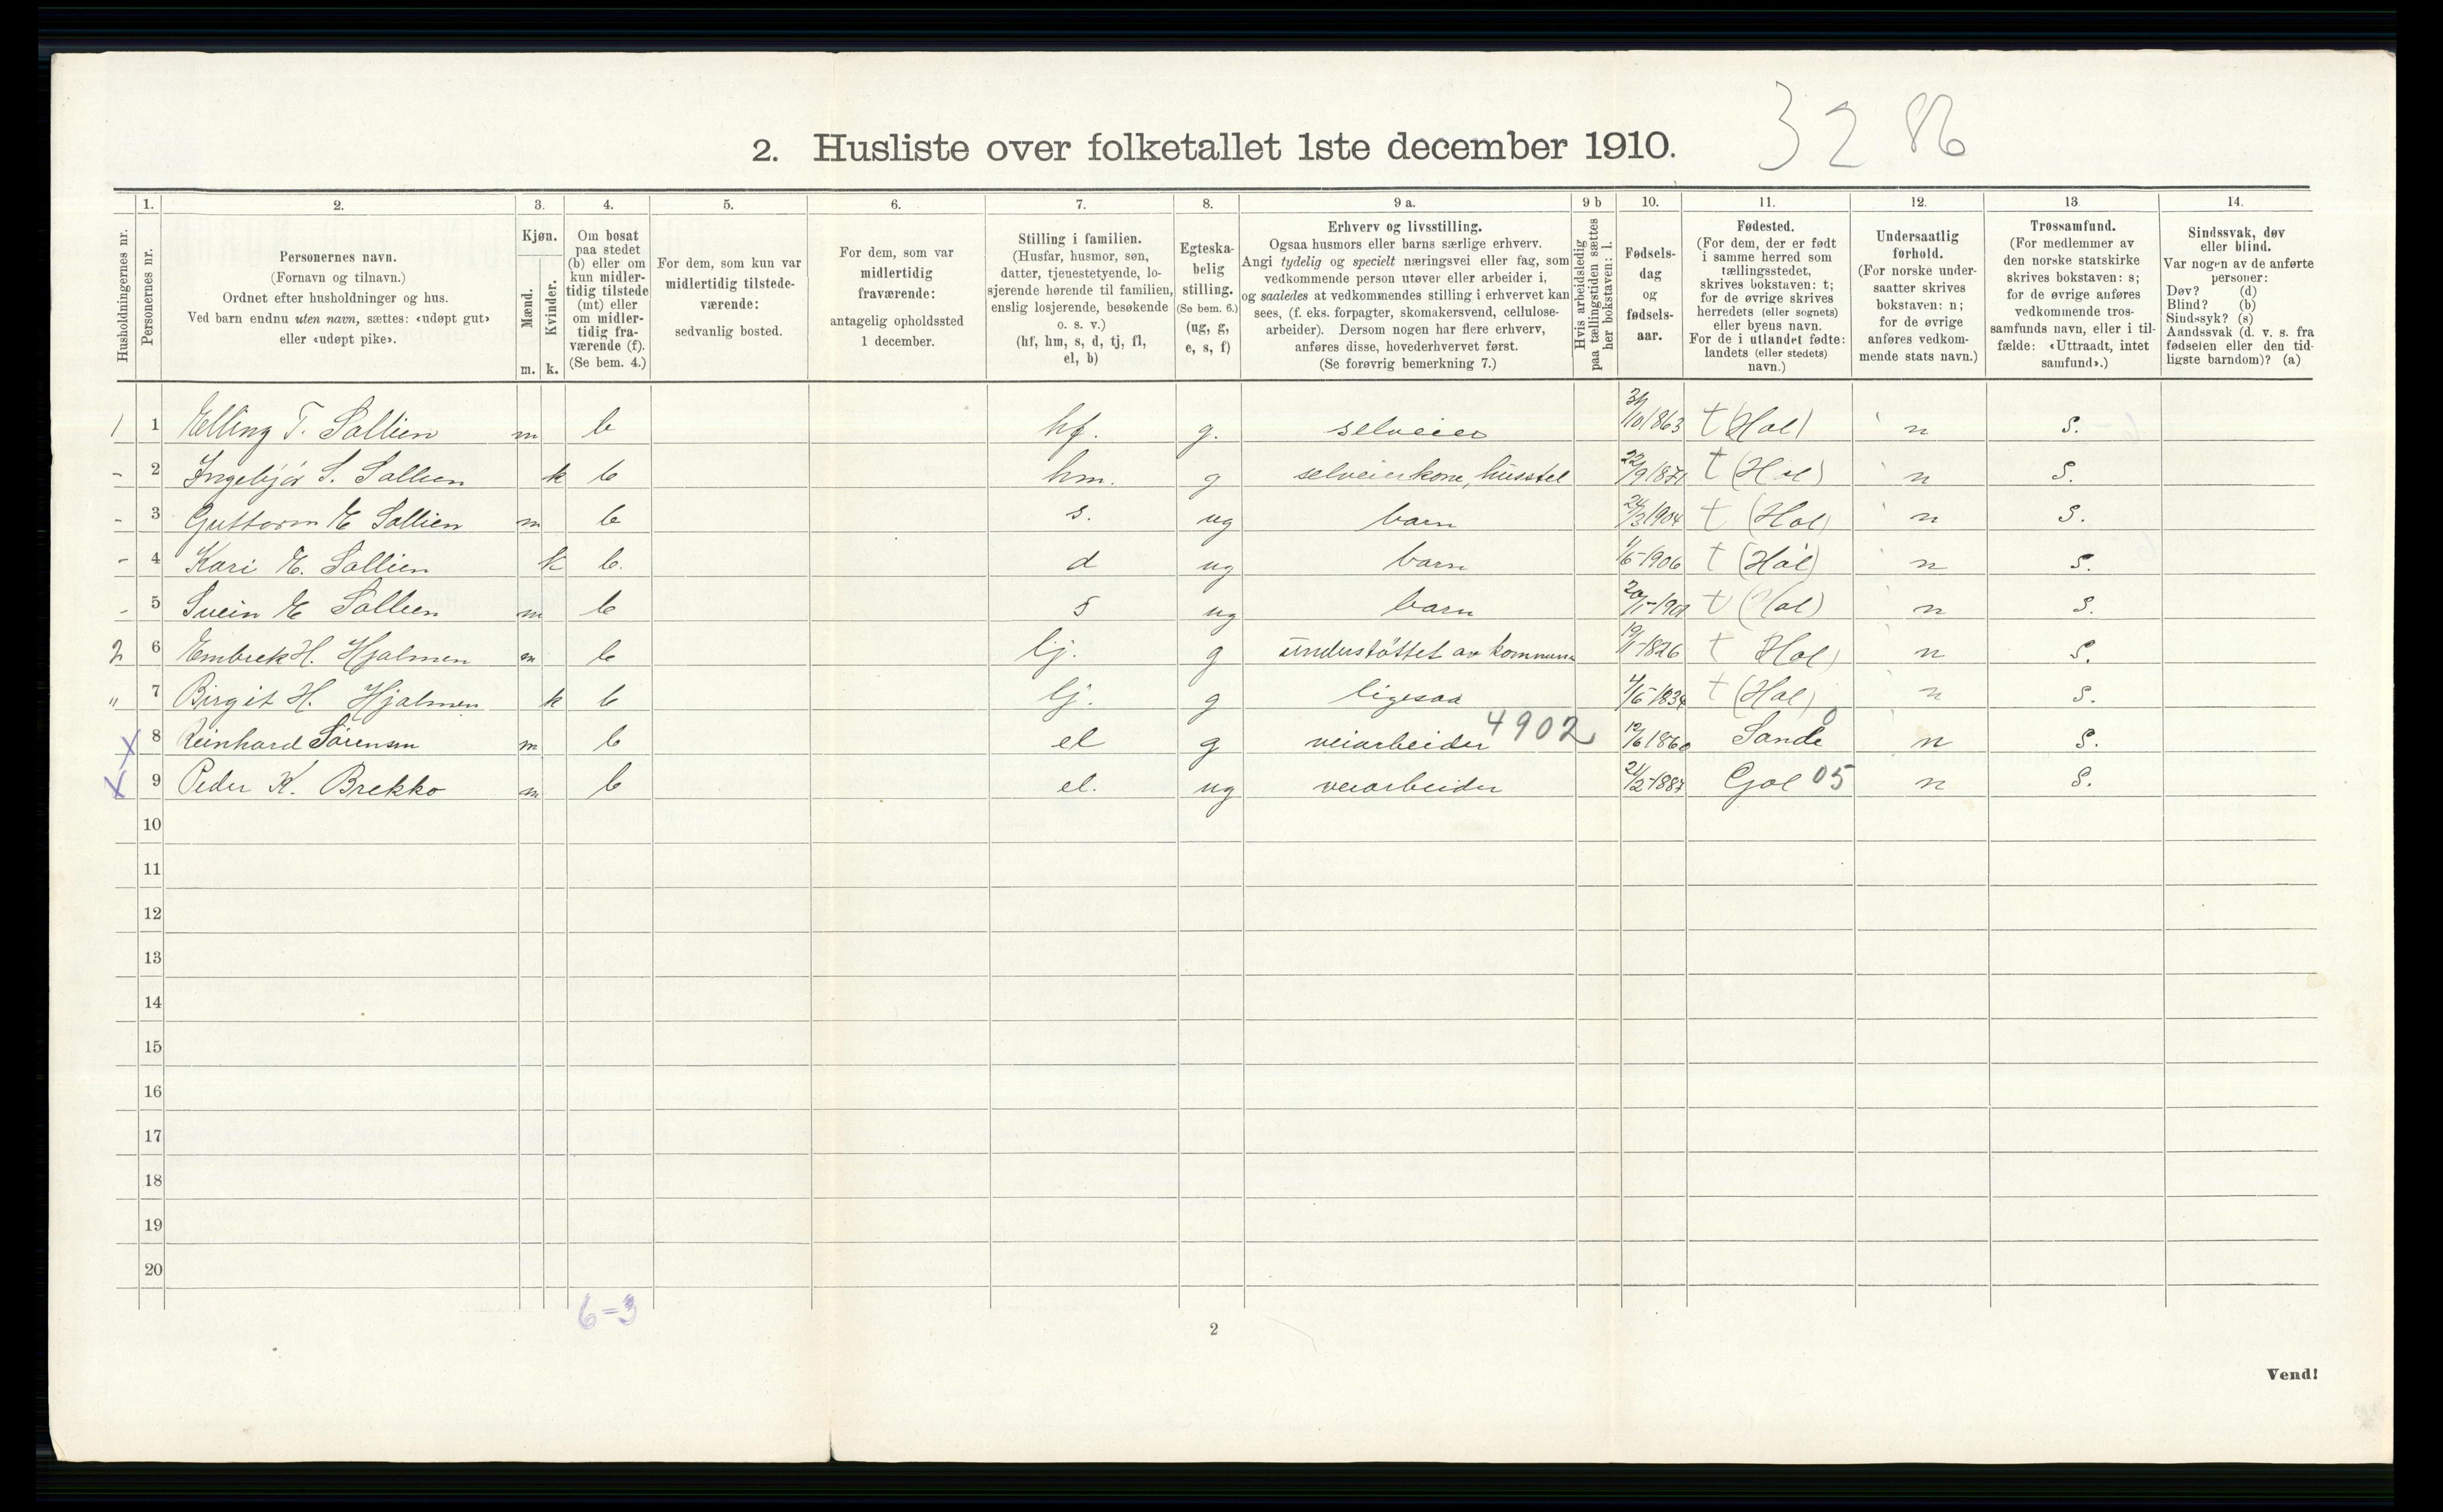 3286
2. Husliste over folketallet 1ste december 1910.
Husholdningernes nr.
1.
Personernes nr.
2.
Personernes navn.
(Fornavn og tilnavn.)
Ordnet efter husholdninger og hus.
Ved barn endnu uten navn, sættes: «udøpt gut»
eller «udøpt pike».
3.
Kjøn.
Mænd.
Kvinder.
m. k.
4.
Om bosat
paa stedet
(b) eller om
kun midler-
tidig tilstede
(mt) eller
om midler-
tidig fra-
værende (f).
(Se bem. 4.)
5.
For dem, som kun var
midlertidig tilstede-
værende:
sedvanlig bosted.
6.
For dem, som var
midlertidig
fraværende:
antagelig opholdssted
1 december.
7.
Stilling i familien.
(Husfar, husmor, søn,
datter, tjenestetyende, lo-
sjerende hørende til familien,
enslig losjerende, besøkende
o. s. v.)
(hf, hm, s, d, tj, fl,
el, b)
8.
Egteska-
belig
stilling.
(Se bem. 6.)
(ug, g,
e, s, f)
9 a.
Erhverv og livsstilling.
Ogsaa husmors eller barns særlige erhverv.
Angi tydelig og specielt næringsvei eller fag, som
vedkommende person utøver eller arbeider i,
og saaledes at vedkommendes stilling i erhvervet kan
sees, (f. eks. forpagter, skomakersvend, cellulose-
arbeider). Dersom nogen har flere erhverv,
anføres disse, hovederhvervet først.
(Se forøvrig bemerkning 7.)
9 b
Hvis arbeidsledig
paa tællingstiden sættes
her bokstaven: l.
10.
Fødsels-
dag
og
fødsels-
aar.
11.
Fødested.
(For dem, der er født
i samme herred som
tællingsstedet,
skrives bokstaven: t;
for de øvrige skrives
herredets (eller sognets)
eller byens navn.
For de i utlandet fødte:
landets (eller stedets)
navn.)
12.
Undersaatlig
forhold.
(For norske under-
saatter skrives
bokstaven: n;
for de øvrige
anføres vedkom-
mende stats navn.)
13.
Trossamfund.
(For medlemmer av
den norske statskirke
skrives bokstaven: s;
for de øvrige anføres
vedkommende tros-
samfunds navn, eller i til-
fælde: «Uttraadt, intet
samfund».)
14.
Sindssvak, døv
eller blind.
Var nogen av de anførte
personer:
Døv? (d)
Blind? (b)
Sindssyk? (s)
Aandssvak (d. v. s. fra
fødselen eller den tid-
ligste barndom)? (a)
1 1 Elling T. Sollien m b hf. g. selveier 31/10 1863 t (Hol) n s.
- 2 Ingebjør S. Sollien k b hm. g selveierkone, husstel 22/9 1871 t (Hol) n s.
- 3 Guttorm E Sollien m b s. ug barn 24/3 1904 t (Hol) n s.
- 4 Kari E. Sollien k b. d ug barn 1/5 1906 t (Hol) n s.
- 5 Svein E Sollien m b s ug barn t (Hol) n s.
2 6 Embrek H. Hjalmen m b lj. g understöttet av kommune 1826 t Hol) n s.
" 7 Birgit H. Hjalmen k b lj. g ligesaa 1834 t (Hol) n s.
X 8 Reinhard Sörensen m b el g veiarbeider 4902 12/6 1860 Sande 0 n s.
X 9 Peder K. Brekko m b el. ug veiarbeider 21/2-1887 Gol 05 n s.
10
11
12
13
14
15
16
17
18
19
20
6=3
2
Vend!